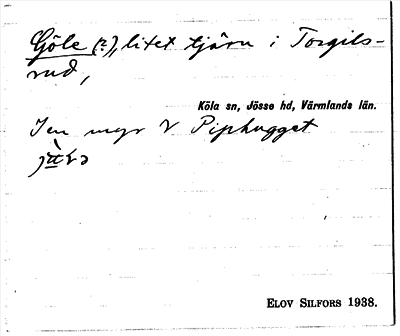 Göle (?), litet tjärn i Torgils-
rud,
Köla sn, Jösse hd, Värmlands län.
I en myr V Piphugget
ELOV SILFORS 1938.